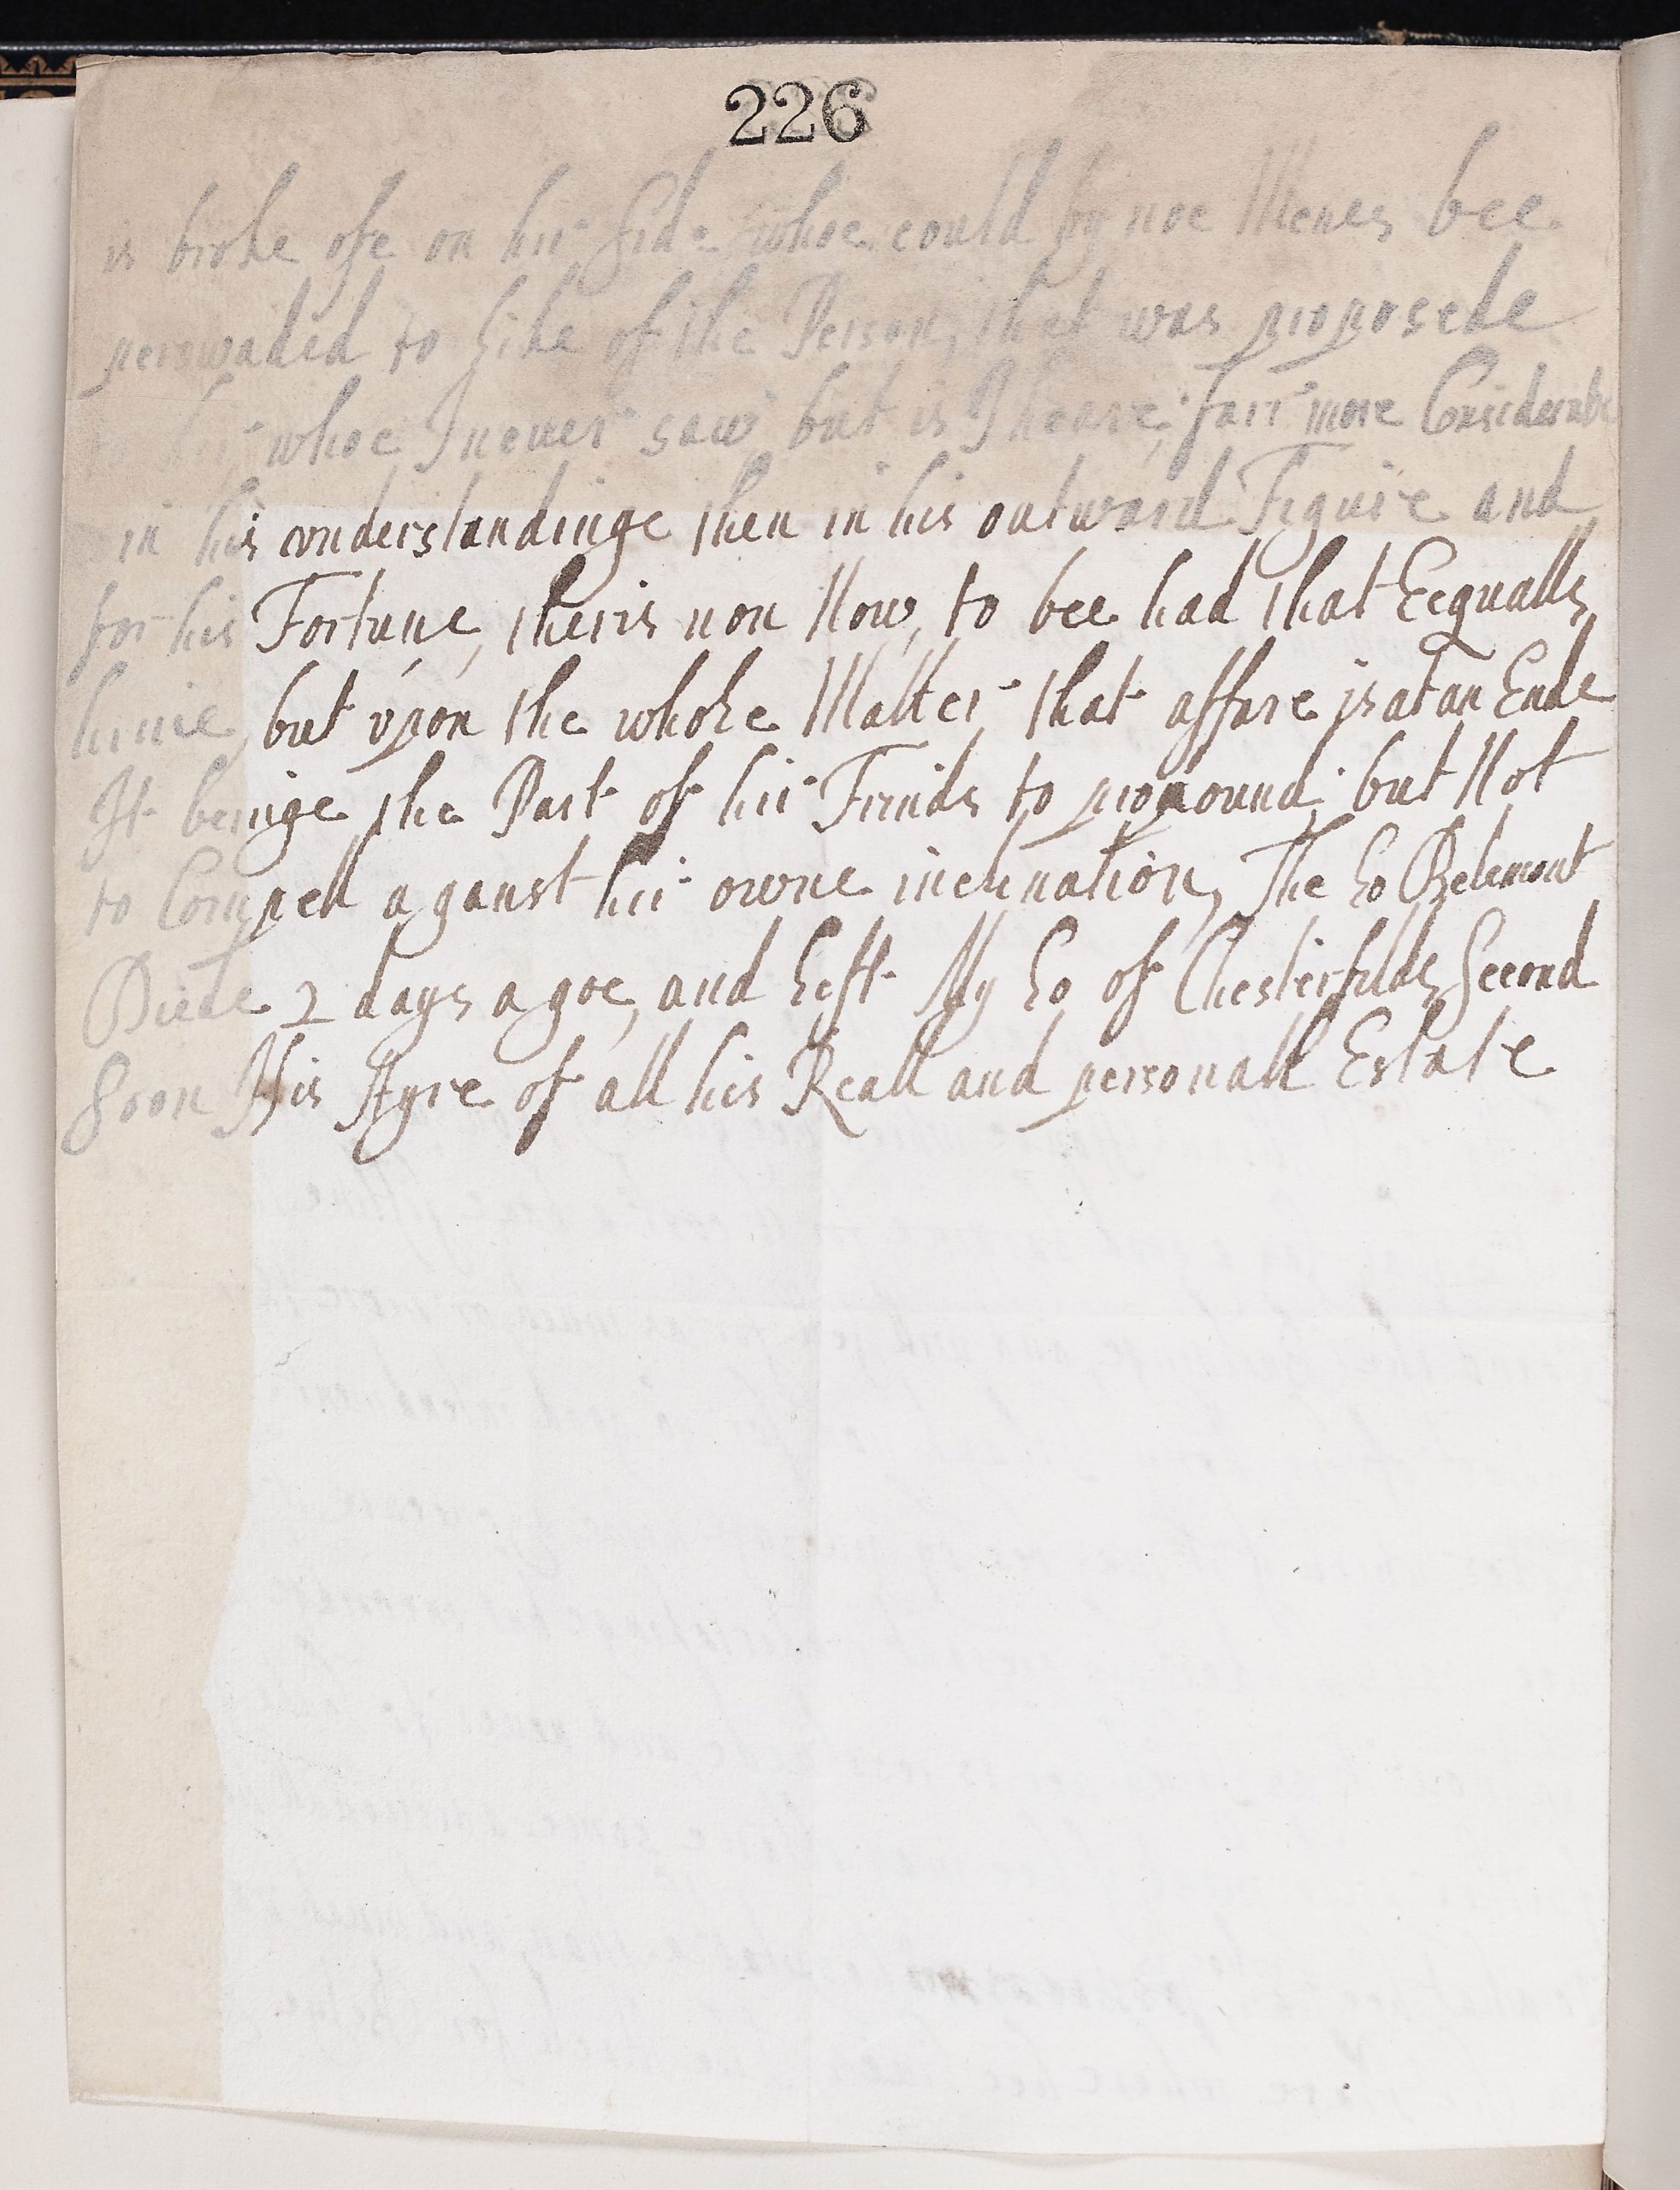 226
is broke ofe on hir side whoe could by noe Menes bee
perswaded to Like of the Person, that was proposede
to hir, whoe I never saw but is I heare, farr more Considerable
in his vnderstandinge then in his outward Figure and
for his Fortune, theris non Now, to bee had that Eequalls
hime, but vpon the whole Matter, that affare is at an Ende
It beinge the Part of hir Frinds to propound, but Not
to Compell aganst hir owne inclination, The Lo Belemont
Diede 2 days agoe, and Left My Lo of Chesterfilds Second
Soon His Ayre of all his Reall and personall Estate